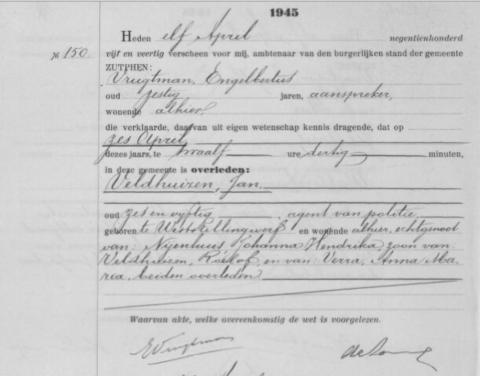 1945
№ 150.
Heden elf April negentienhonderd
vijf en veertig verscheen voor mij, ambtenaar van den burgerlijken stand der gemeente
ZUTPHEN:
Vrugtman, Engelbertus
oud zestig jaren, aanspreker,
wonende alhier,
die verklaarde, daarvan uit eigen wetenschap kennis dragende, dat op
zes April
dezes jaars, te twaalf ure dertig minuten,
in deze gemeente is overleden:
Veldhuizen, Jan
oud zes en vijftig, agent van politie
geboren te Weststellingwerf en wonende alhier, echtgenoot
van Nijenhuis, Johanna Hendrika, zoon van
Veldhuizen, Roelof, en van Verra, Anna Ma-
ria, beiden overleden
Waarvan akte, welke overeenkomstig de wet is voorgelezen.
EVrugtman